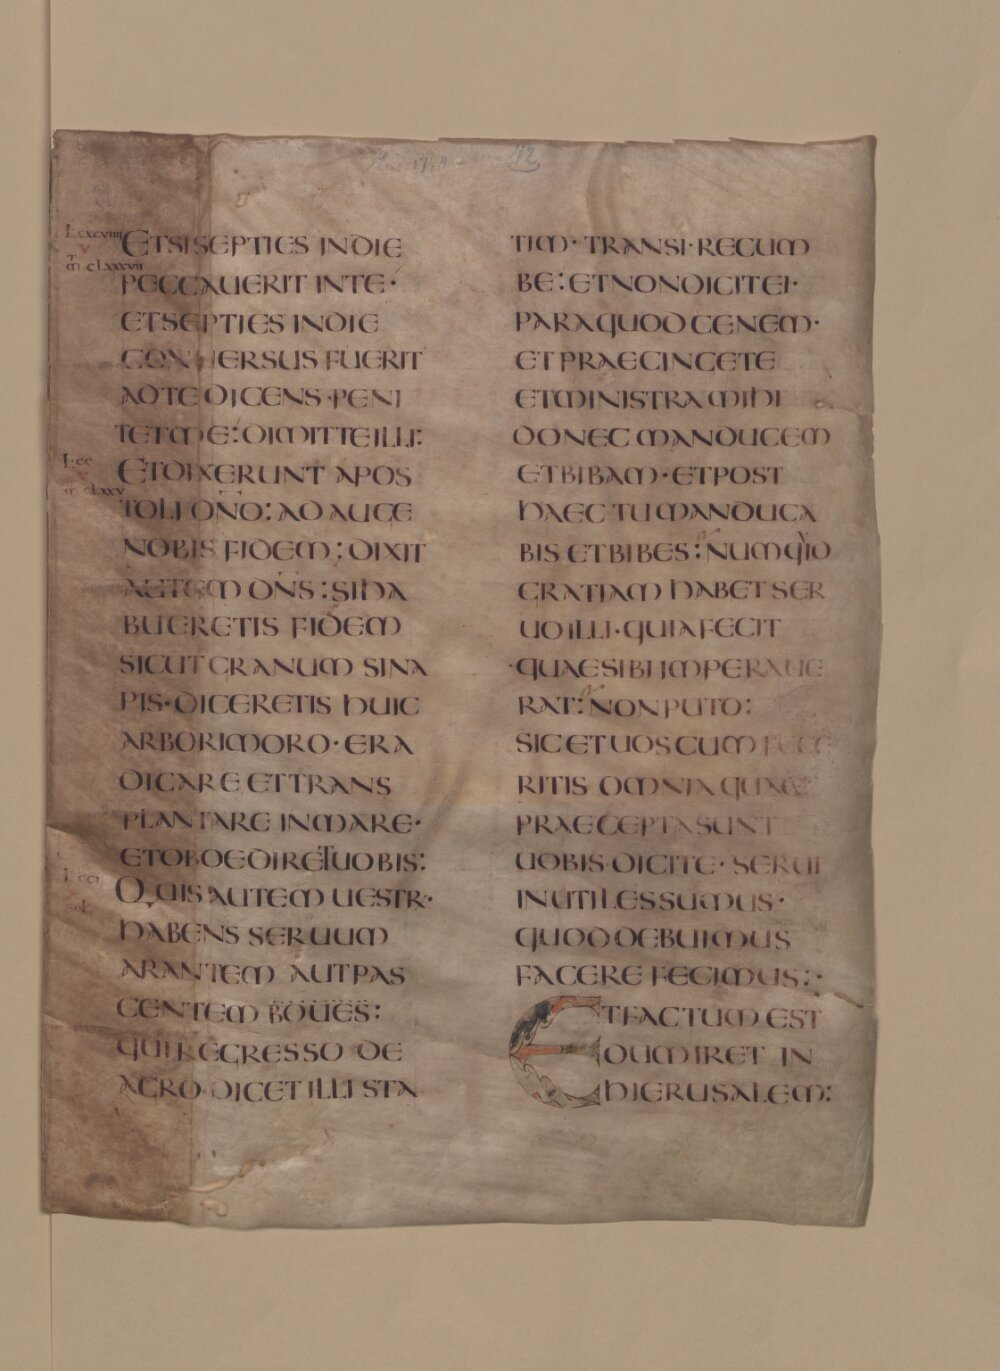 L cxcviiii
ETSI SEPTIES IN DIE
M clxxxvii
PECCAUERIT IN TE·
ET SEPTIES IN DIE
CONUERSUS FUERIT
AD TE DICENS·PENI
TET ME: DIMITTE ILLI:
L cc
ET DIXERUNT APOS
M clxxv
TOLI DNO: ADAUGE
NOBIS FIDEM: DIXIT
AUTEM DNS: SI HA
BUERETIS FIDEM
SICUT GRANUM SINA
PIS·DICERETIS HUIC
ARBORI MORO·ERA
DICARE ET TRANS
PLANTARE IN MARE·
ET OBOEDIRET UOBIS:
L cci
QUIS AUTEM UESTR·
HABENS SERUUM
ARANTEM AUT PAS
CENTEM BOUES:
QUI REGRESSO DE
AGRO·DICET ILLI STA
TIM·TRANSI·RECUM
BE: ET NON DICIT EI·
PARA QUOD CENEM·
ET PRAECINGE TE
ET MINISTRA MIHI
DONEC MANDUCEM
ET BIBAM·ET POST
HAEC TU MANDUCA
BIS ET BIBES: NUMQUID
GRATIAM HABET SER
UO ILLI·QUIA FECIT
·QUAE SIBI IMPERAUE
RAT: NON PUTO:
SIC ET UOS CUM FECE
RITIS OMNIA QUAE
PRAECEPTA SUNT
UOBIS·DICITE·SERUI
INUTILES SUMUS·
QUOD DEBUIMUS
FACERE FECIMUS:·
ET FACTUM EST
DUM IRET IN
HIERUSALEM: